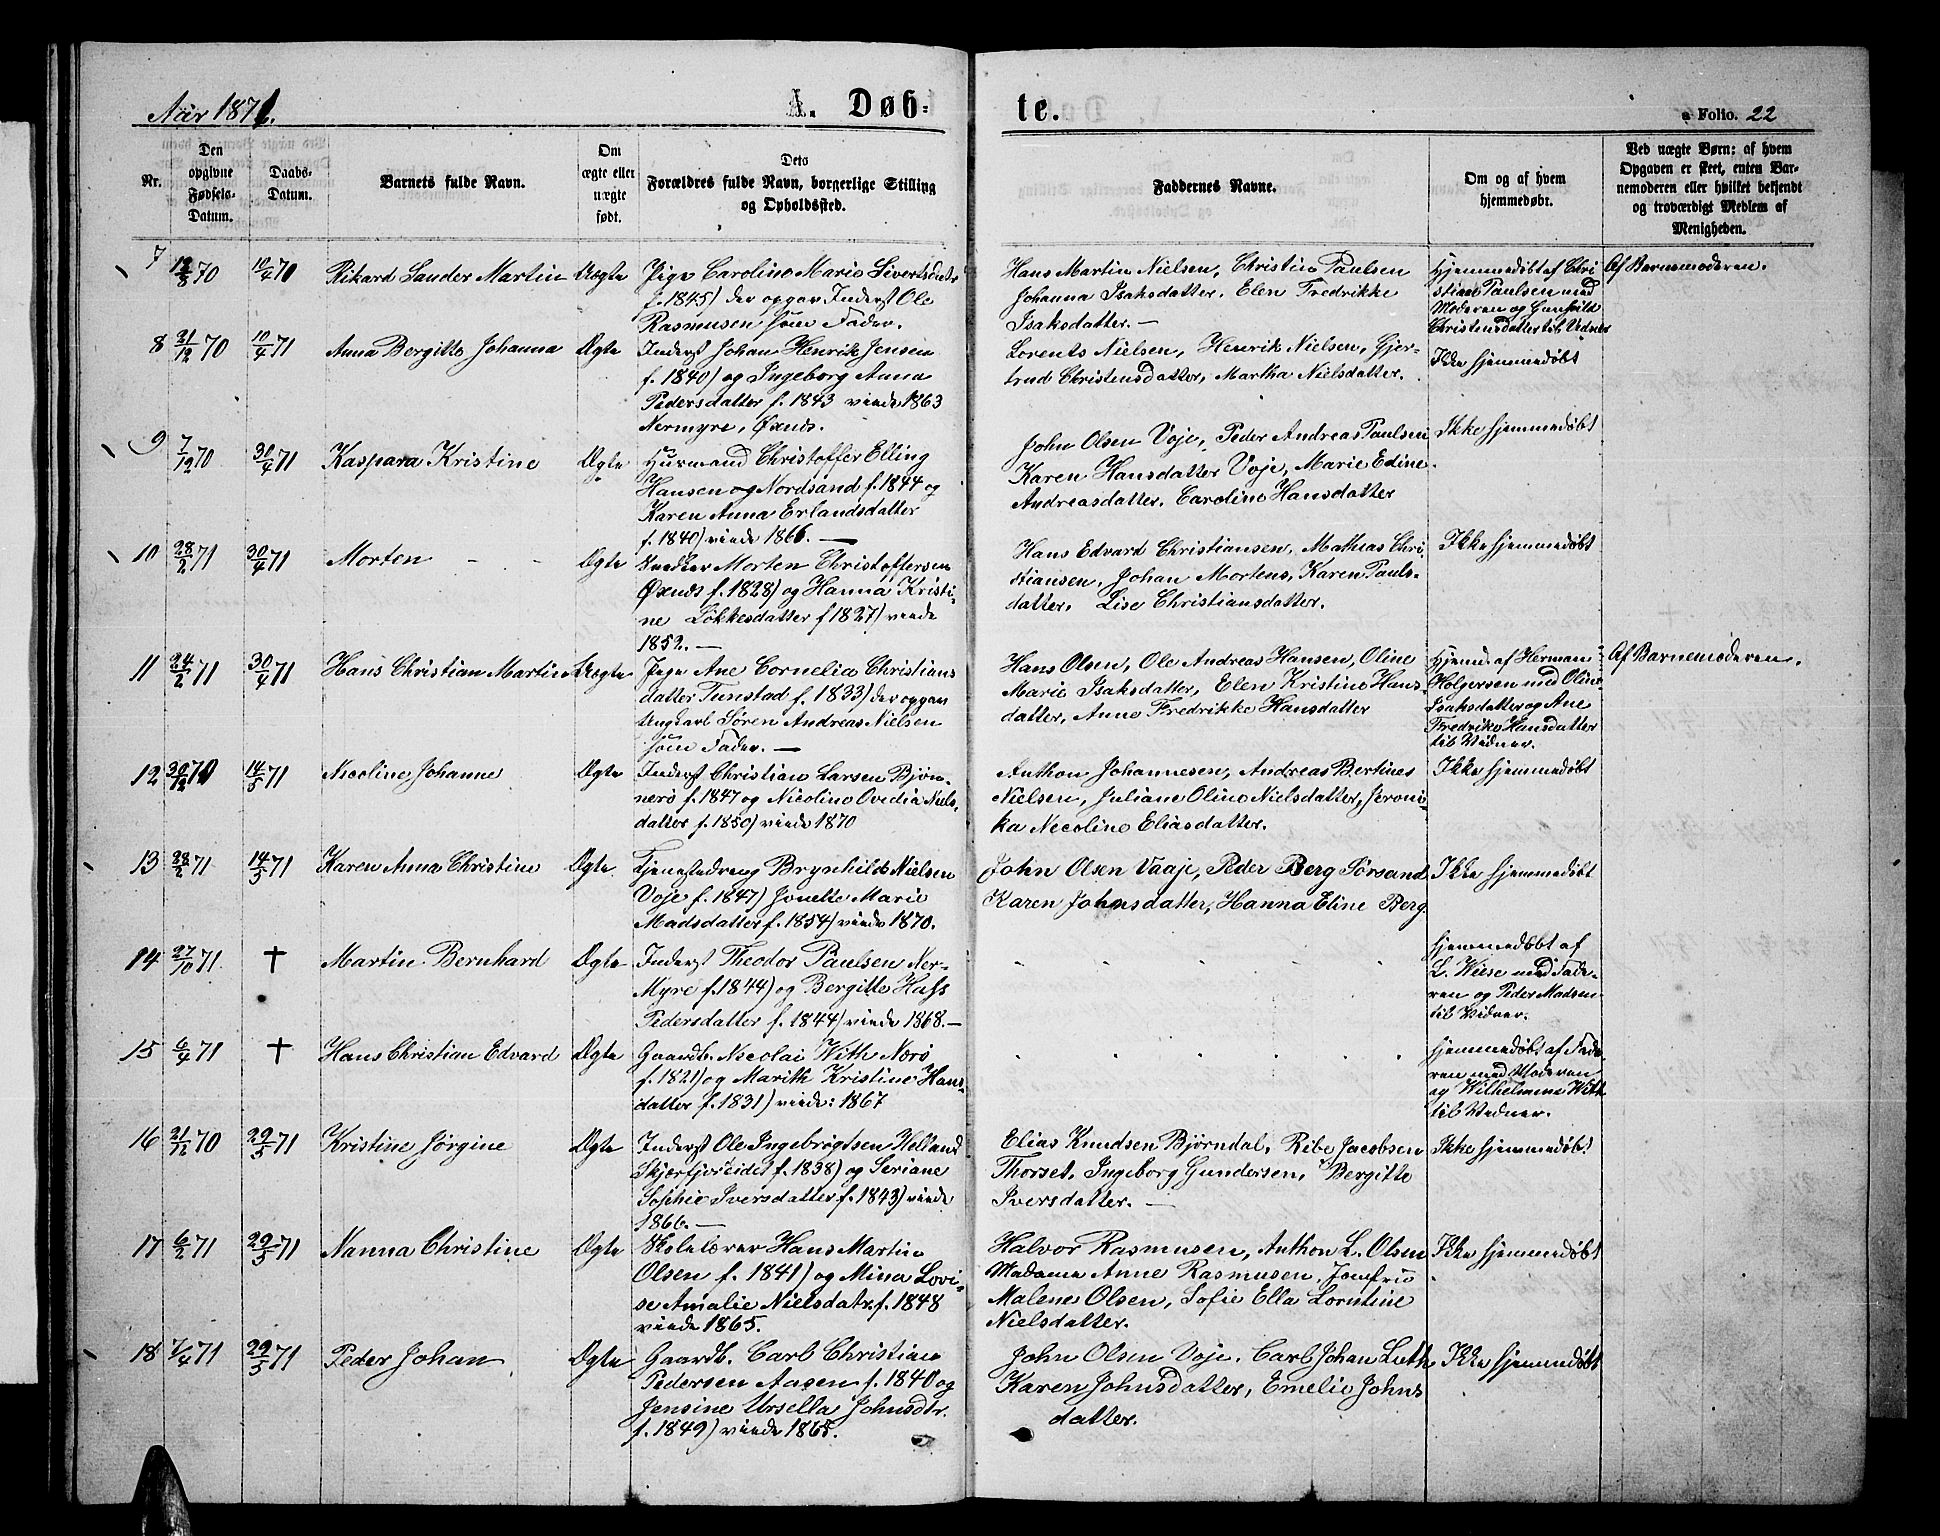 Aar 1871.
A. Døbte.
a Folio. 22
Nr.
Den opgivne Fødsels-Datum.
Daabs-Datum.
Barnets fulde Navn.
Om ægte eller uægte født.
Dets Forældres fulde Navn, borgerlige Stilling og Opholdssted.
Faddernes Navne.
Om og af hvem hjemmedøbt.
Ved uægte Børn; af hvem Opgaven er skeet, enten Barnemoderen eller hvilket bekjendt og troværdigt Medlem af Menigheden.
7 12/8 70 10/4 71 Rikard Sander Martin Uægte
Pige Carolina Marie Sivertsdatr
f. 1845) der opgav Inderst Ole
Rasmusen som Fader.
Hans Martin Nielsen, Christine Paulsen
Johanna Isaksdatter, Elen Fredrikke
Isaksdatter. —
Hjemmedøbt af Chri
stian Paulsen med
Moderen og Gunhild
Christensdatter til Vidner
Af Barnemoderen.
8 21/12 70 10/4 71 Anna Bergitte Johanna Ægte
Inderst Johan Henrik Jensen
f. 1840) og Ingeborg Anna
Pedersdatter f. 1843 viede 1863
Nermyre, Øxnes.
Lorents Nielsen, Henrik Nielsen, Gjer-
trud Christensdatter, Martha Nielsdatter.
Ikke hjemmedøbt
9 7/12 70 30/4 71 Kaspara Kristine Ægte
Huusmand Christoffer Elling
Hansen og Nordsand f. 1844 og
Karen Anna Erlandsdatter
f. 1840) viede 1866. —
John Olsen Voje, Peder Andreas Paulsen
Karen Hansdatter Voje, Marie Edine
Andreasdatter, Caroline Hansdatter
Ikke hjemmedøbt
10 28/2 71 30/4 71 Morten - - Ægte
Morten Christoffersen
Øxnes f. 1828) og Hanna Kristi-
ne Lökkesdatter f 1827) viede
1852. —
Hans Edvard Christiansen, Mathias Chri
stiansen, Johan Mortens, Karen Pauls-
datter, Lise Christiansdatter.
Ikke hjemmedøbt
11 24/2 71 30/4 71 Hans Christian Martin Uægte
Pige Ane Cornelia Christians
datter Tunstad f. 1833) der opgav
Ungkarl Sören Andreas Nielsen
som Fader. —
Hans Olsen, Ole Andreas Hansen, Oline
Marie Isaksdatter, Elen Kristine Hans-
datter, Anne Fredrikke Hansdatter
Hjemd. af Herman
Holgersen med Oline
Isaksdatter og Ane
Fredrike Hansdatter
til Vidner.
Af Barnemoderen.
12 30/12 70 14/5 71 Nicoline Johanne Ægte
Inderst Christian Larsen Bjørn-
nerö f. 1847 og Nicoline Ovedia Niels-
datter f. 1850) viede 1870
Anthon Johannesen, Andreas Bertines
Nielsen, Juliane Oline Nielsdatter, Jeroni-
ka Necoline Eliasdatter.
Ikke hjemmedøbt
13 28/2 71 14/5 71 Karen Anna Christine Ægte
Tjenestedreng Brynhild Nielsen
Voje f. 1847) Jonette Marie
Madsdatter f. 1854) viede 1870.
John Olsen Vaaje, Peder Berg Sørsand
Karen Johnsdatter, Hanna Eline Berg.
Ikke hjemmedøbt
14 27/10 71 † Martin Bernhard Ægte
Inderst Theodor Paulsen Ner-
Myre f. 1844) og Bergitte Hass
Pedersdatter f. 1844) viede 1868. —
hjemmedøbt af
L. Wiese med Fade-
ren og Peder Madsen
til Vidner.
15 6/4 71 † Hans Christian Edvard Ægte
Gaardb. Nicolai With Nærö
f. 1821) og Marith Kristine Hans-
datter f. 1831) viede: 1867
hjemmedøbt af Fade-
ren med Moderen
og Wilhelmine With
til Vidner.
16 21/12 70 29/5 71 Kristine Jörgine Ægte
Inderst Ole Ingebrigtsen Helland
Skjerfjoreidet f. 1838) og Seriane
Sophie Iversdatter f. 1843) viede
1866. —
Elias Knudsen Björndal, Ribe Jacobsen
Thorset, Ingeborg Gundersen, Bergitte
Iversdatter. —
Ikke hjemmedøbt
17 6/2 71 29/5 71 Nanna Christine Ægte
Skolelærer Hans Martin
Olsen f. 1841) og Mina Lovi-
se Amalie Nielsdatr. f. 1848
viede 1865.
Halvor Rasmusen, Anthon L. Olsen
Madame Anne Rasmusen, Jomfru
Malene Olsen, Sofie Ella Lorntine
Nielsdatter.
Ikke hjemmedøbt
18 7/4 71 29/5 71 Peder Johan Ægte
Gaardb. Carl Christian
Pedersen Aasen f. 1840 og
Jensine Ursella Johnsdtr.
f. 1849) viede 1865.
John Olsen Voje, Carl Johan Luth
Karen Johnsdatter, Emelie Johns
datter.
Ikke hjemmedøbt